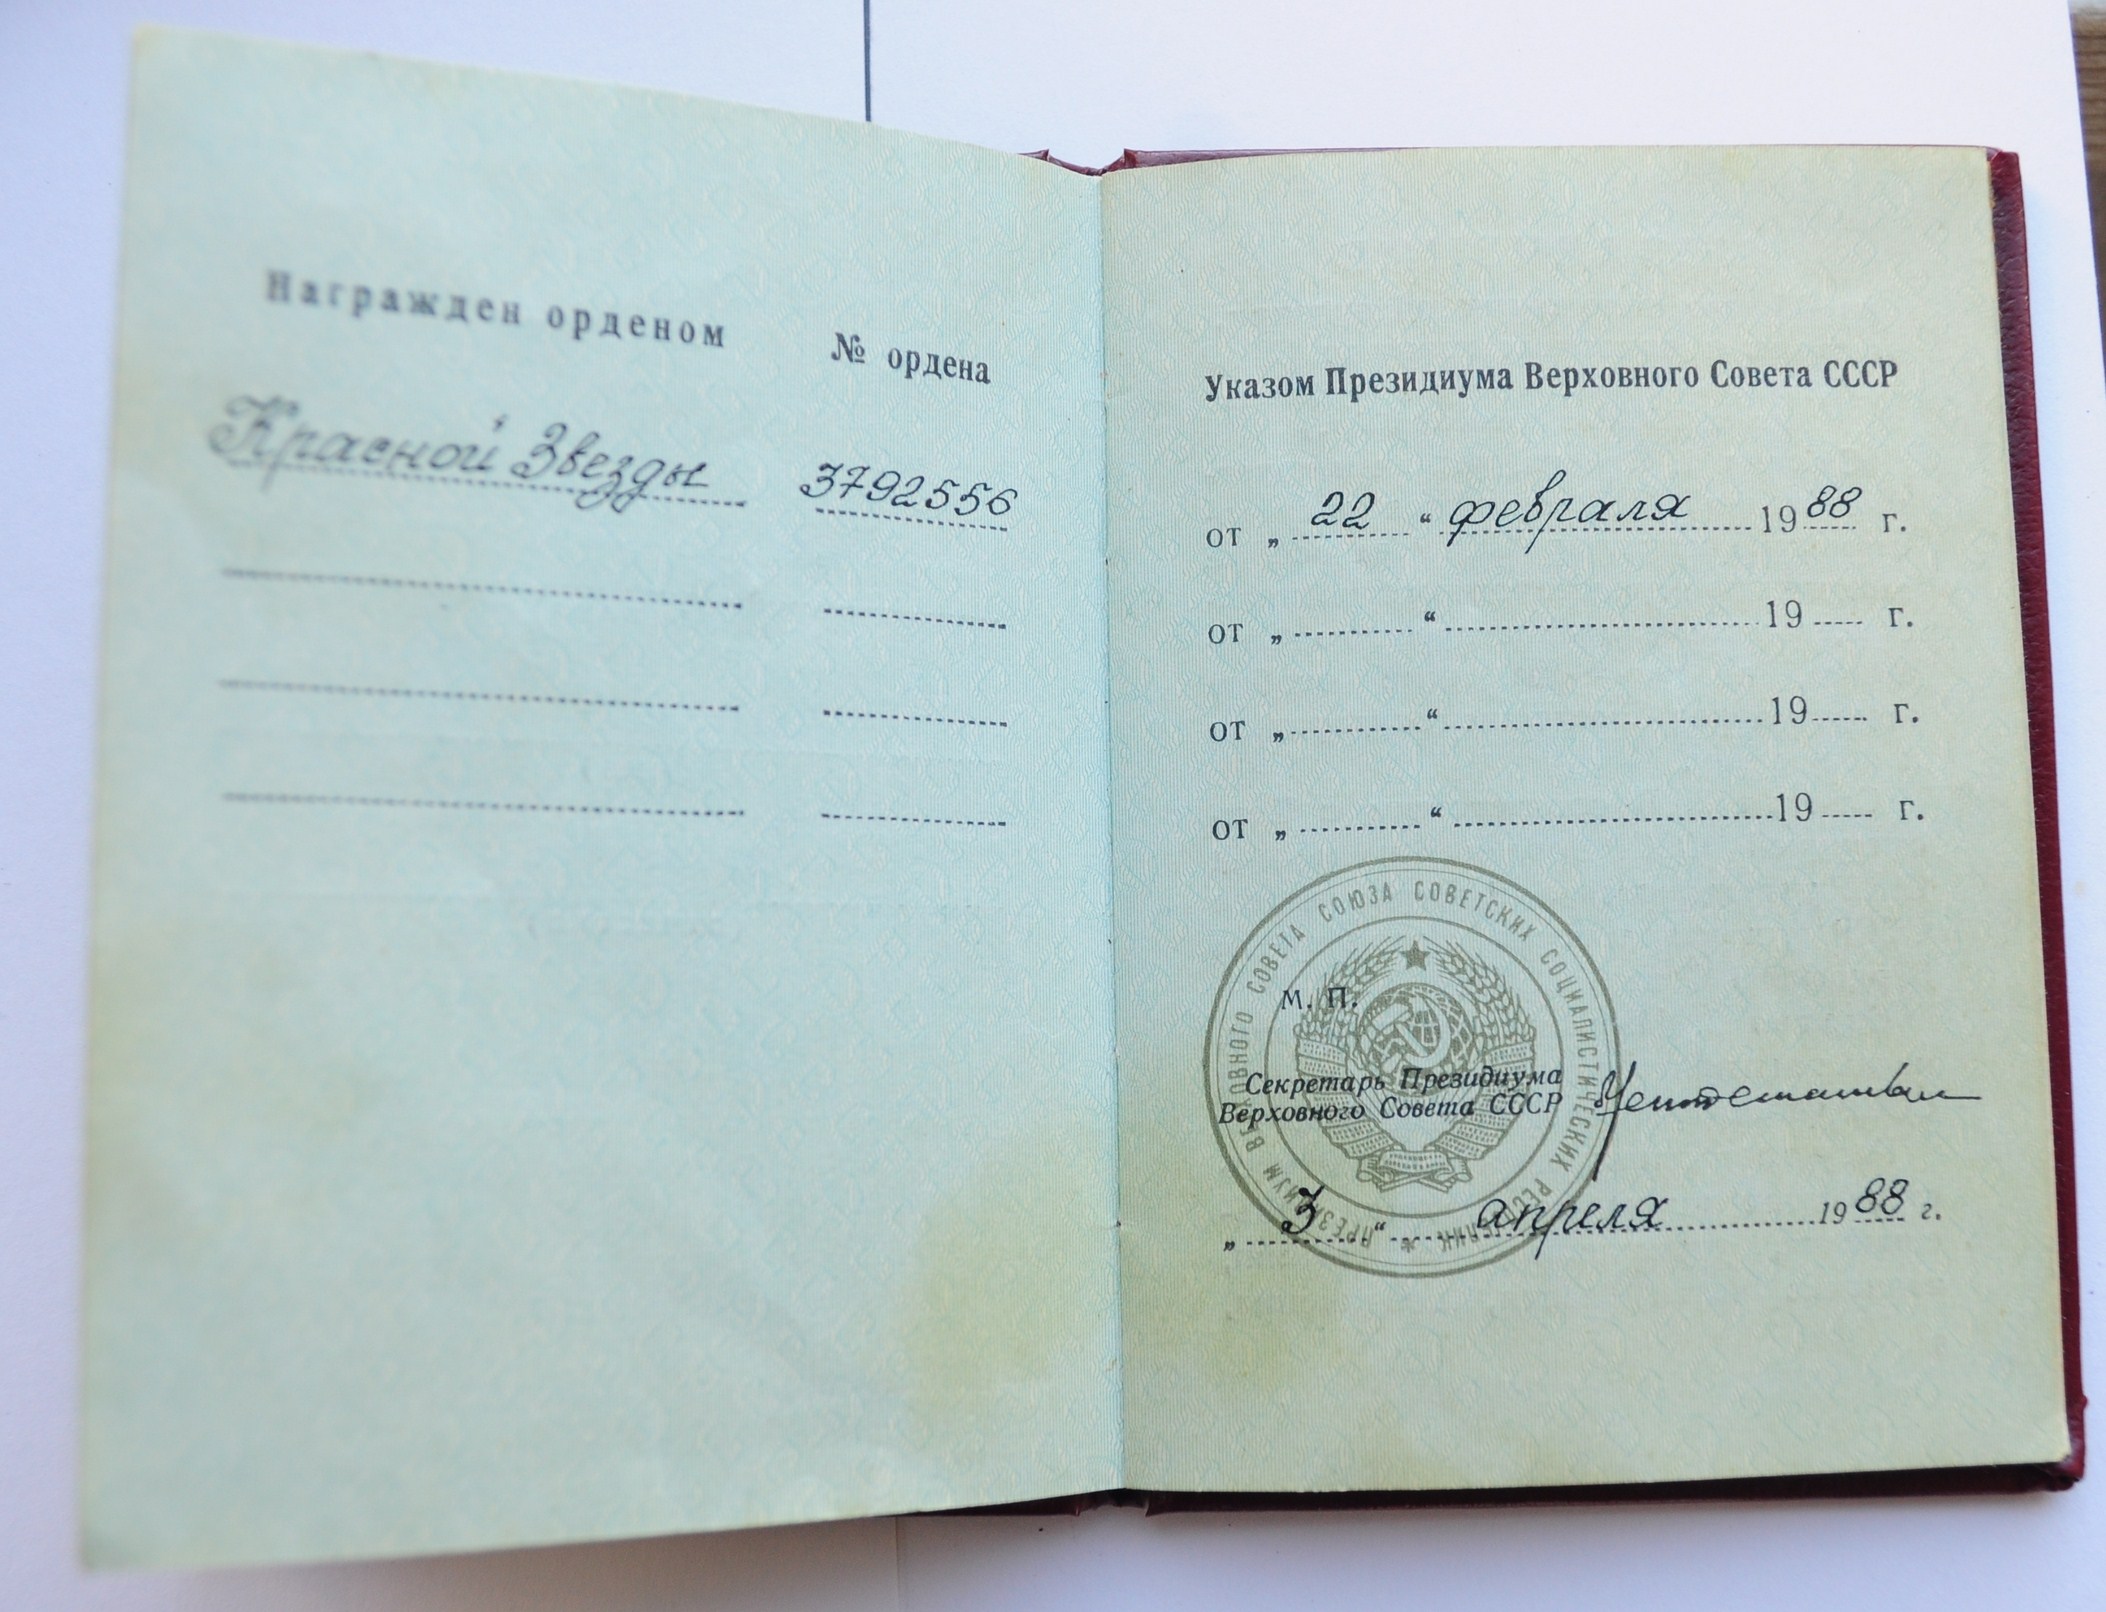 Награжден орденом № ордена
Красной Звезды 3792556
Указом Президиума Верховного Совета СССР
от „ 22 “ февраля 1988 г.
от „ “ 19 г.
от „ “ 19 г.
от „ “ 19 г.
ПРЕЗИДИУМ ВЕРХОВНОГО СОВЕТА СОЮЗА СОВЕТСКИХ СОЦИАЛИСТИЧЕСКИХ РЕСПУБЛИК *
М. П.
Секретарь Президиума
Верховного Совета СССР
„ 3 “ апреля 1988 г.